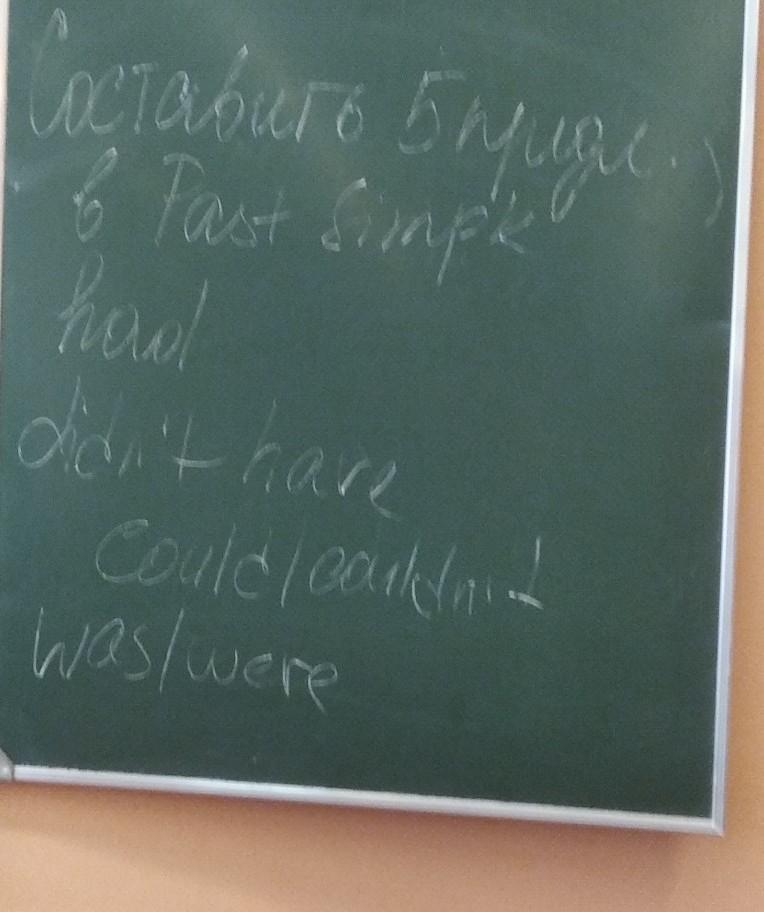 Составить 5 предл.
в Past Simple
had
didn't have
could/couldn't
was/were